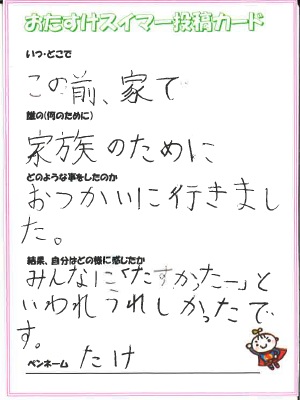 おたすけスイマー投稿カード
いつ・どこで
この前、家で
誰の(何のために)
家族のために
どのような事をしたのか
おつかいに行きまし
た。
結果、自分はどの様に感じたか
みんなに「たすかったー」と
いわれうれしかったで
す。
ペンネーム たけ